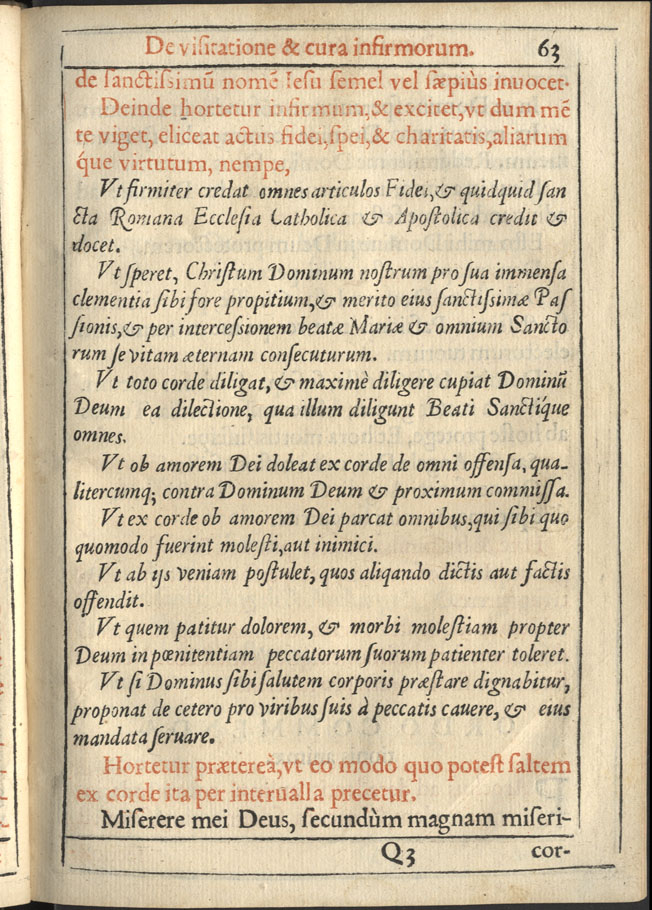 De visitatione & cura infirmorum. 63
de sanctissimũ nomẽ Iesu semel vel sæpiùs inuocet.
Deinde hortetur infirmum, & excitet, vt dum mẽ
te viget, eliceat actus fidei, spei, & charitatis, aliarum
q́ue virtutum, nempe,
Vt firmiter credat omnes articulos Fidei, & quidquid san
cta Romana Ecclesia Catholica & Apostolica credit &
docet.
Vt speret, Christum Dominum nostrum pro sua immensa
clementia sibi fore propitium, & merito eius sanctissimæ Pas
sionis, & per intercessionem beatæ Mariæ & omnium Sancto
rum se vitam æternam consecuturum.
Vt toto corde diligat, & maximè diligere cupiat Dominũ
Deum ea dilectione, qua illum diligunt Beati Sanctique
omnes.
Vt ob amorem Dei doleat ex corde de omni offensa, qua-
litercumq; contra Dominum Deum & proximum commissa.
Vt ex corde ob amorem Dei parcat omnibus, qui sibi quo
quomodo fuerint molesti, aut inimici.
Vt ab ijs veniam postulet, quos aliqando dictis aut factis
offendit.
Vt quem patitur dolorem, & morbi molestiam propter
Deum in pœnitentiam peccatorum suorum patienter toleret.
Vt si Dominus sibi salutem corporis præstare dignabitur,
proponat de cetero pro viribus suis à peccatis cauere, & eius
mandata seruare.
Hortetur prætereà, vt eo modo quo potest saltem
ex corde ita per interualla precetur.
Miserere mei Deus, secundùm magnam miseri-
Q3 cor-